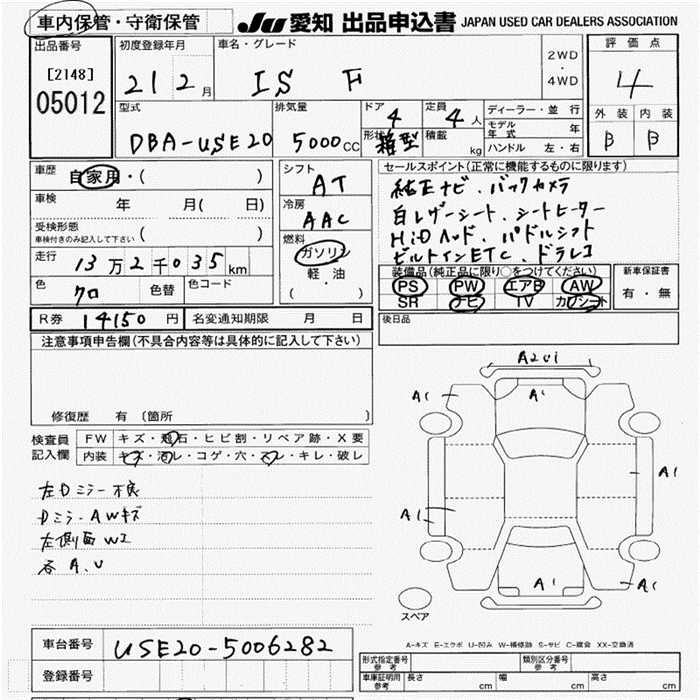 車内保管・守衛保管
JU 愛知 出品申込書 JAPAN USED CAR DEALERS ASSOCIATION
出品番号
[2148]
05012
初度登録年月
21 2 月
車名・グレード
IS F
2WD
・
4WD
評価点
4
外装 内装
B B
型式
DBA-USE20
排気量
5000 CC
ドア
4
形状
箱型
定員
4 人
積載
kg
ディーラー・並行
モデル年式 年
ハンドル 左・右
車歴
自家用・( )
車検
年 月( 日)
受検形態
車検付きのみ記入して下さい ( )
走行
13万2千035 km
色
クロ
色替
色コード
シフト
AT
冷房
AAC
燃料
ガソリン
軽・油
( )
セールスポイント(正常に機能するものに限ります)
純正ナビ、バックカメラ
白レザーシート、シートヒーター
HiDヘッド、パドルシフト
ビルトインETC、ドラレコ
装備品(純正品に限り○をつけてください)
PS PW エアB AW
SR ナビ TV カワシート
新車保証書
有・無
R券 14150 円 名変通知期限 月 日
後日品
注意事項申告欄(不具合内容等は具体的に記入して下さい)
修復歴 有 〔箇所 〕
検査員記入欄
FW キズ・飛石・ヒビ割・リペア跡・X要
内装 キズ・汚レ・コゲ・穴・スレ・キレ・破レ
左Dミラー不良
Dミラ、AWキズ
左側面W2
各A.U
A2Ui
A1
A1
A1
A1
A1
A1
A1
スペア
A-キズ E-エクボ U-凹み W-補修跡 S-サビ C-腐食 XX-交換済
車台番号 USE20-5006282
登録番号
形式指定番号
参考
類別区分番号
参考
車庫証明用
参考
長さ cm 幅 cm 高さ cm